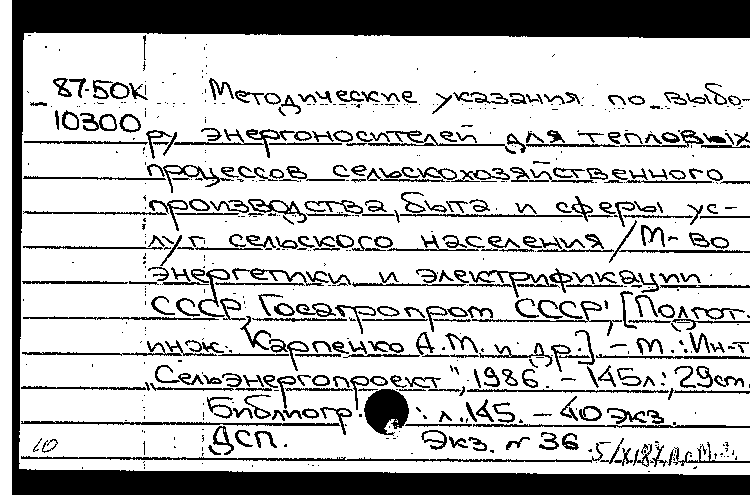 87-50К Методические указания по выбо-
10300 ру энергоносителей для тепловых
процессов сельскохозяйственного
производства, быта и сферы ус-
луг сельского населения / М-во
энергетики и электрификации
СССР, Госагропром СССР; [Подгот.
инж. Карпенко А.М. и др.]. - М.: Ин-т
"Сельэнергопроект", 1986. - 145л.; 29см.
Библиогр.: л. 145. - 40 экз.
ДСП. Экз. № 36
10